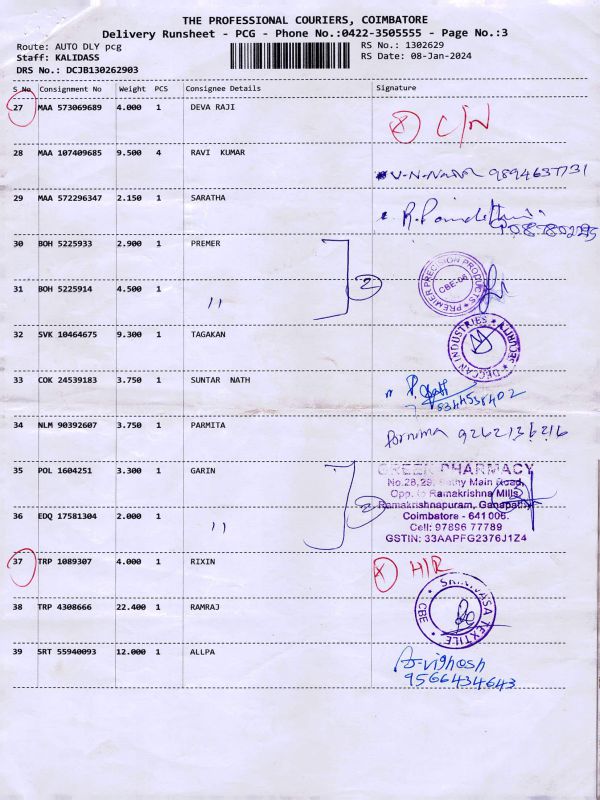 THE PROFESSIONAL COURIERS, COIMBATORE
Delivery Runsheet - PCG - Phone No.:0422-3505555 - Page No.:3
Route: AUTO DLY pcg
RS No.: 1302629
Staff: KALIDASS
RS Date: 08-Jan-2024
DRS No.: DCJB130262903
S No Consignment No Weight PCS Consignee Details Signature
27 MAA 573069689 4.000 1 DEVA RAJI
X C/N
28 MAA 107409685 9.500 4 RAVI KUMAR
29 MAA 572296347 2.150 1 SARATHA
30 BOH 5225933 2.900 1 PREMER
2
PREMIER PRECISION PRODUCTS
CBE-06
31 BOH 5225914 4.500 1 "
32 SVK 10464675 9.300 1 TAGAKAN
DECCAN INDUSTRIES
33 COK 24539183 3.750 1 SUNTAR NATH
34 NLM 90392607 3.750 1 PARMITA
35 POL 1604251 3.300 1 GARIN
2
GREEN PHARMACY
No.28,29, Sathy Main Road,
Opp. to Ramakrishna Mills
Ramakrishnapuram, Ganapathy
Coimbatore - 641 006.
Cell: 97896 77789
GSTIN: 33AAPFG2376J1Z4
36 EDQ 17581304 2.000 1 "
37 TRP 1089307 4.000 1 RIXIN
X H/R
38 TRP 4308666 22.400 1 RAMRAJ
TEXTILE
CBE
39 SRT 55940093 12.000 1 ALLPA
A-vighosh
9566434643